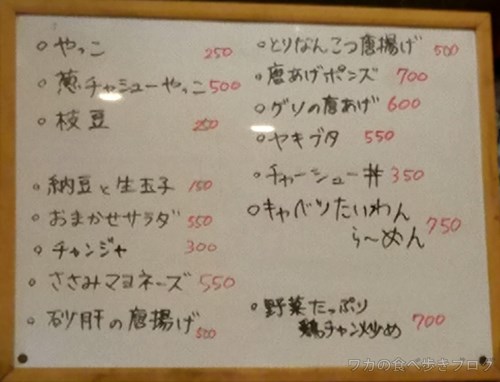 ○ やっこ 250
○ 葱チャシューやっこ 500
○ 枝豆 250
○ 納豆と生玉子 150
○ おまかせサラダ 550
○ チャンジャ 300
○ ささみマヨネーズ 550
○ 砂肝の唐揚げ 500
○ とりなんこつ唐揚げ 500
○ 唐あげポンズ 700
○ ゲソの唐あげ 600
○ ヤキブタ 550
○ チャーシュー丼 350
○ キャベツたいわん
ら〜めん 750
○ 野菜たっぷり
鶏チャン炒め 700
ワカの食べ歩きブログ